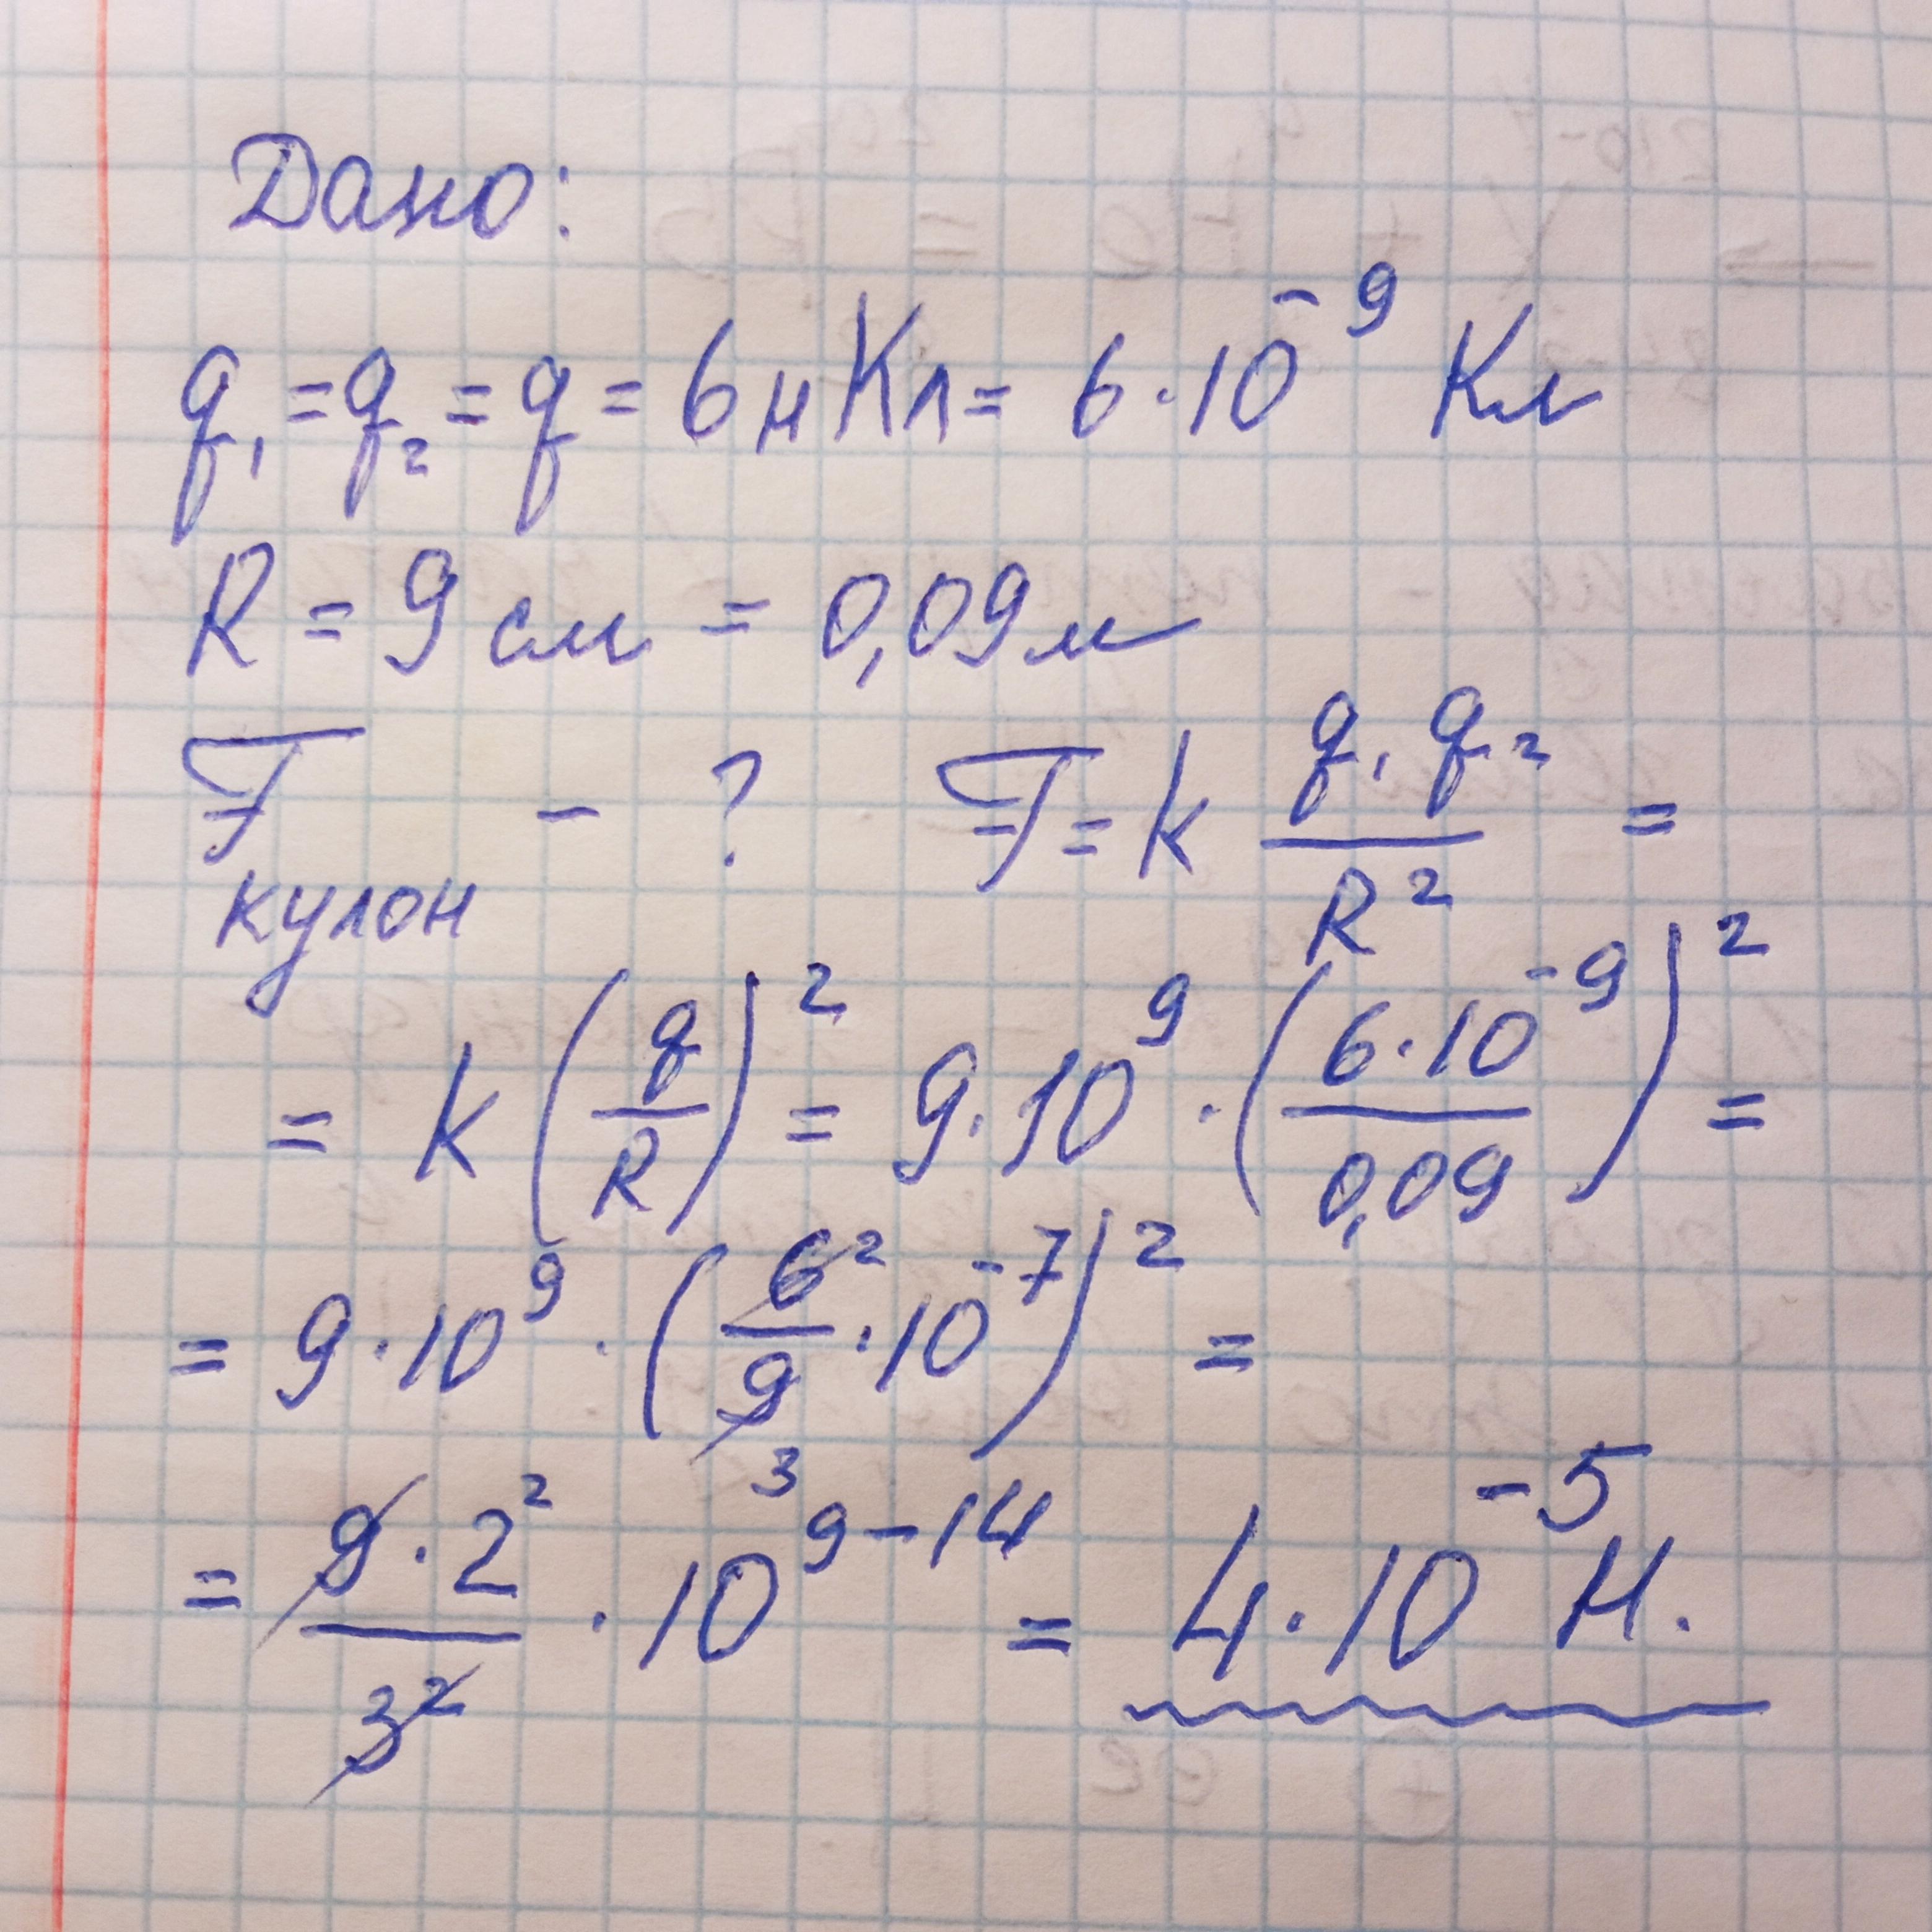 Дано:
q₁ = q₂ = q = 6 нКл = 6·10⁻⁹ Кл
R = 9 см = 0,09 м
F кулон - ? F = k q₁ q₂ / R² =
= k (q/R)² = 9·10⁹ · (6·10⁻⁹ / 0,09)² =
= 9·10⁹ · (6² / 9³ · 10⁻⁷)² =
= 9·2² / 3² · 10⁹⁻¹⁴ = 4·10⁻⁵ Н.